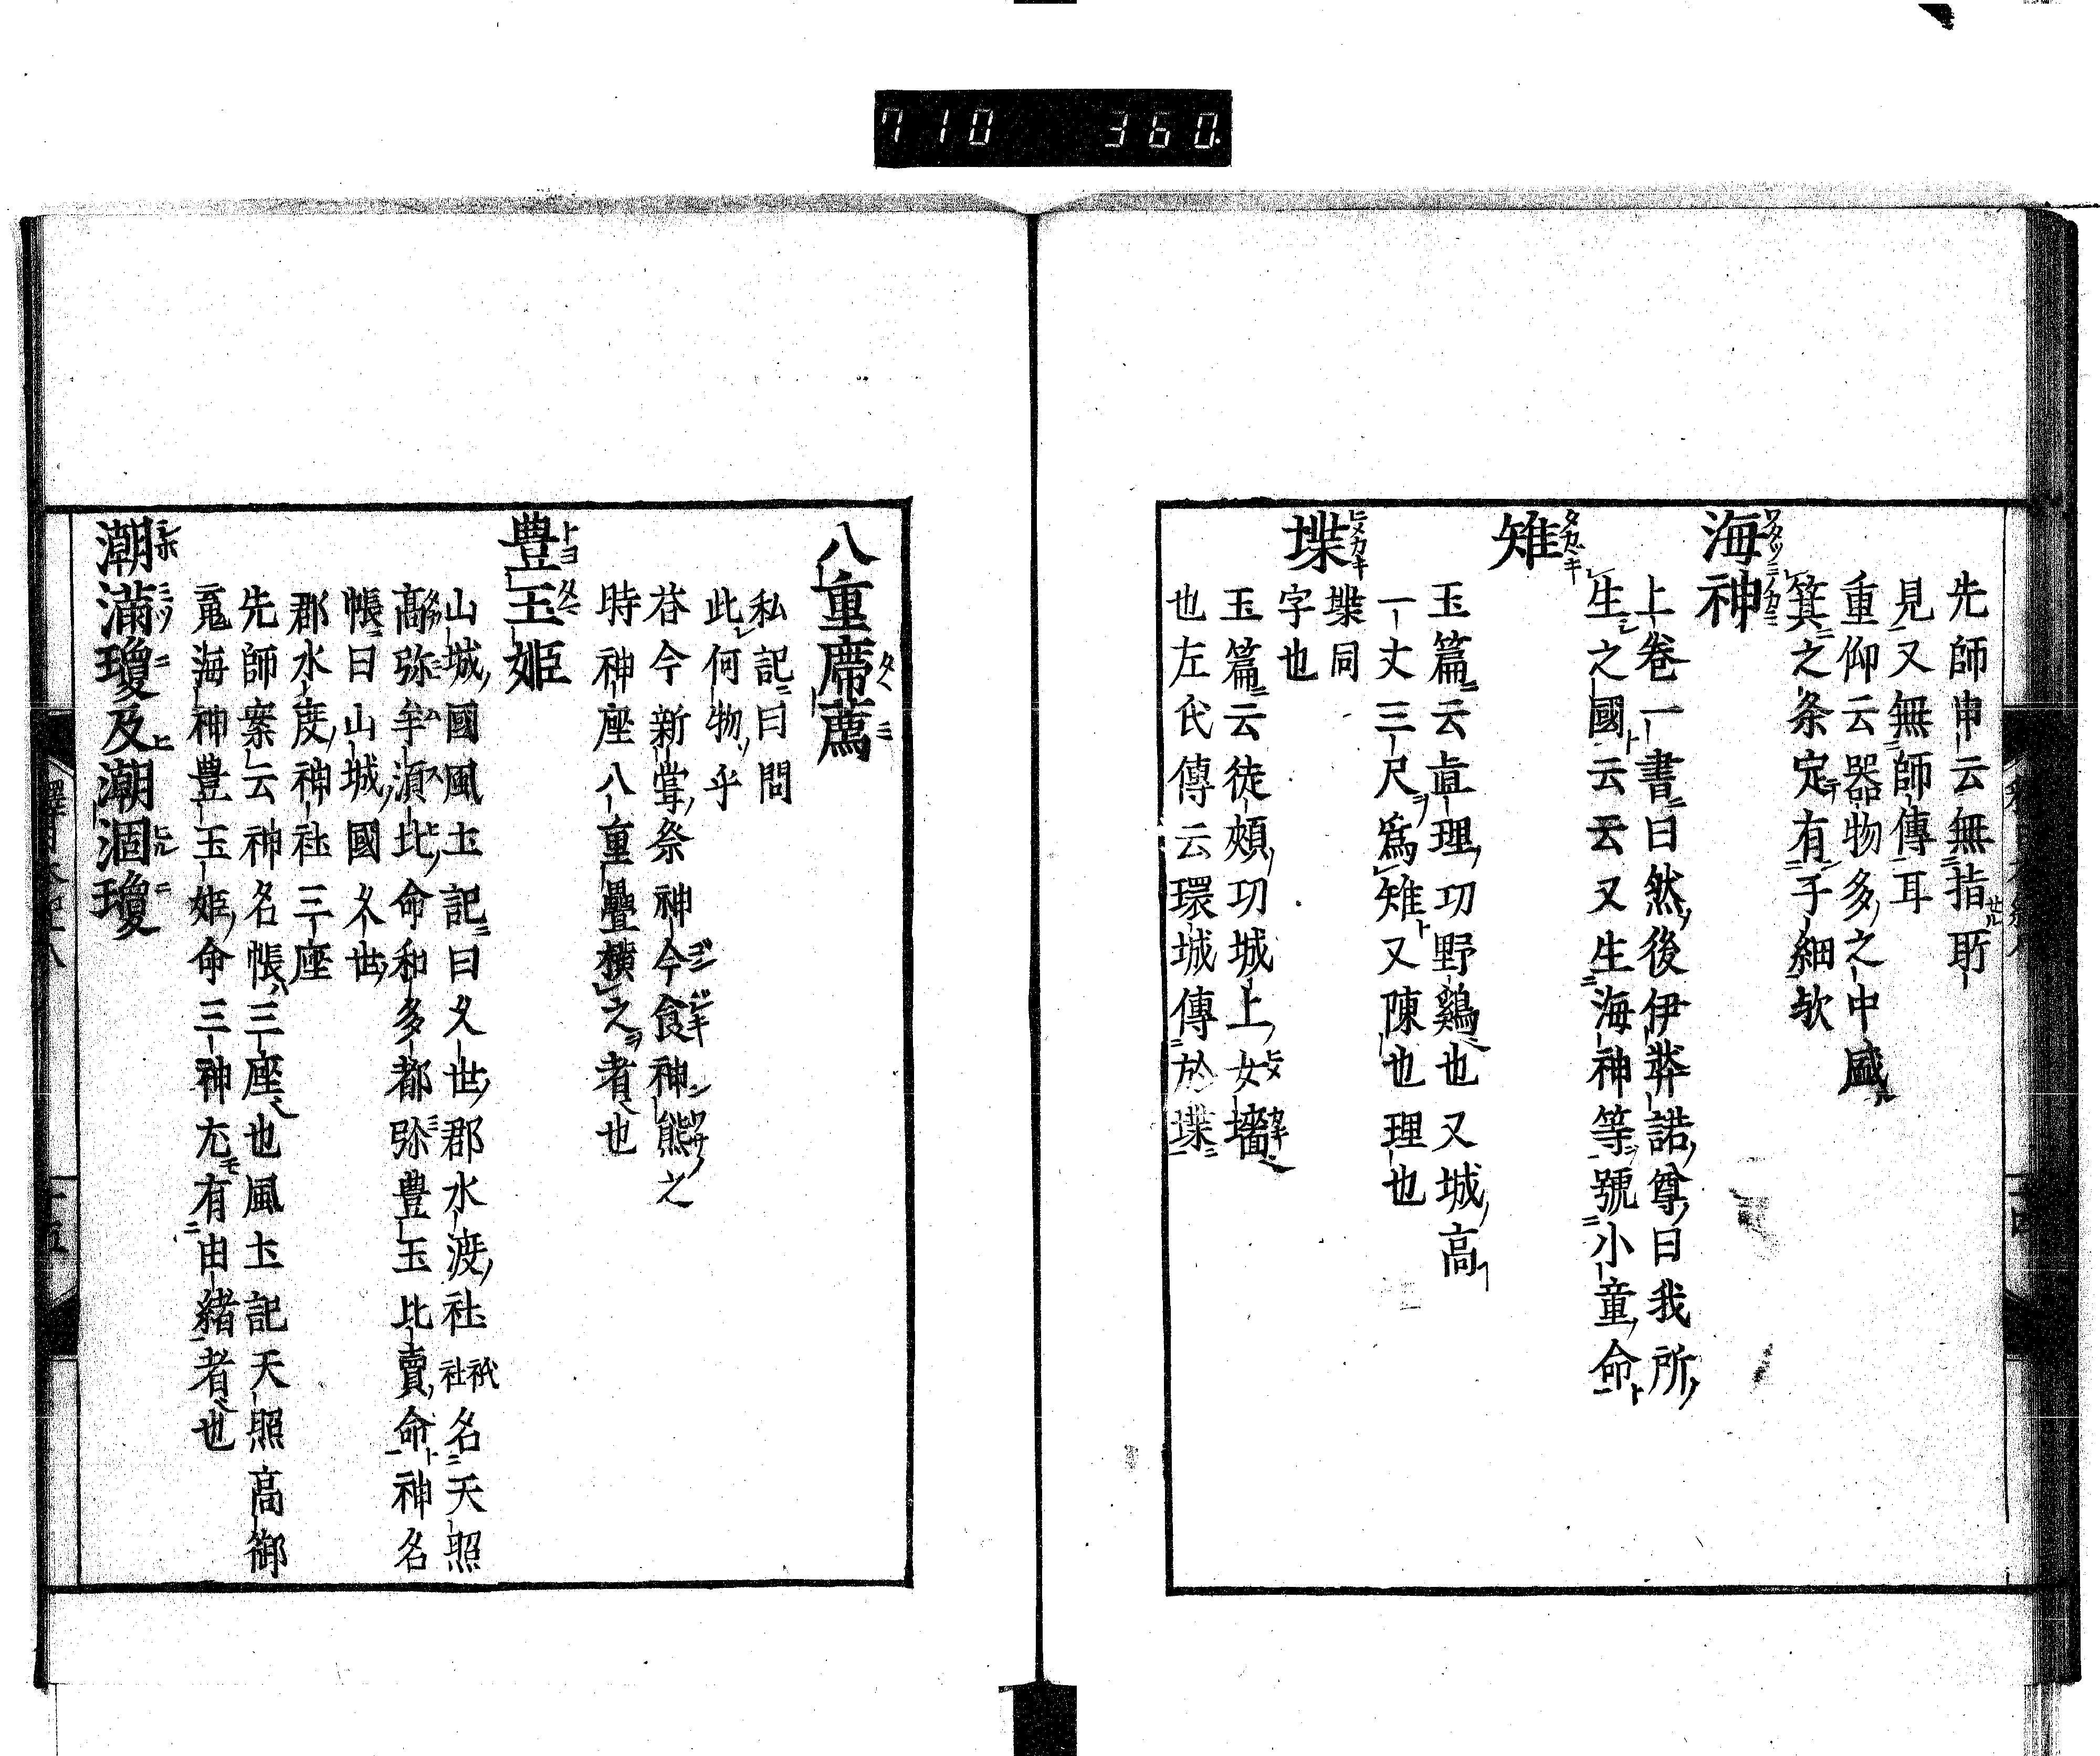 710 360
先師申云無指所
見又無師傳耳
重仰云器物多之中盛
箕之条定有子細欤
海神
上卷一書曰然後伊弉諾尊曰我所
生之國云云又生海神等號小童命
雉
玉篇云直理切野鷄也又城高
一丈三尺爲雉又陳也理也
堞
㙜同
字也
玉篇云徒頰切城上女墻
也左氏傳云環城傳於堞
八重席薦
私記曰問
此何物乎
荅今新嘗祭神今食神態之
時神座八重疊横之者也
豊玉姫
山城國風土記曰久世郡水渡社祇社名天照
高弥牟湏比命和多都弥豊玉比賣命神名
帳曰山城國久世
郡水度神社三座
先師案云神名帳三座也風土記天照高御
䰟海神豊玉姫命三神尤有由緒者也
潮滿瓊及潮涸瓊